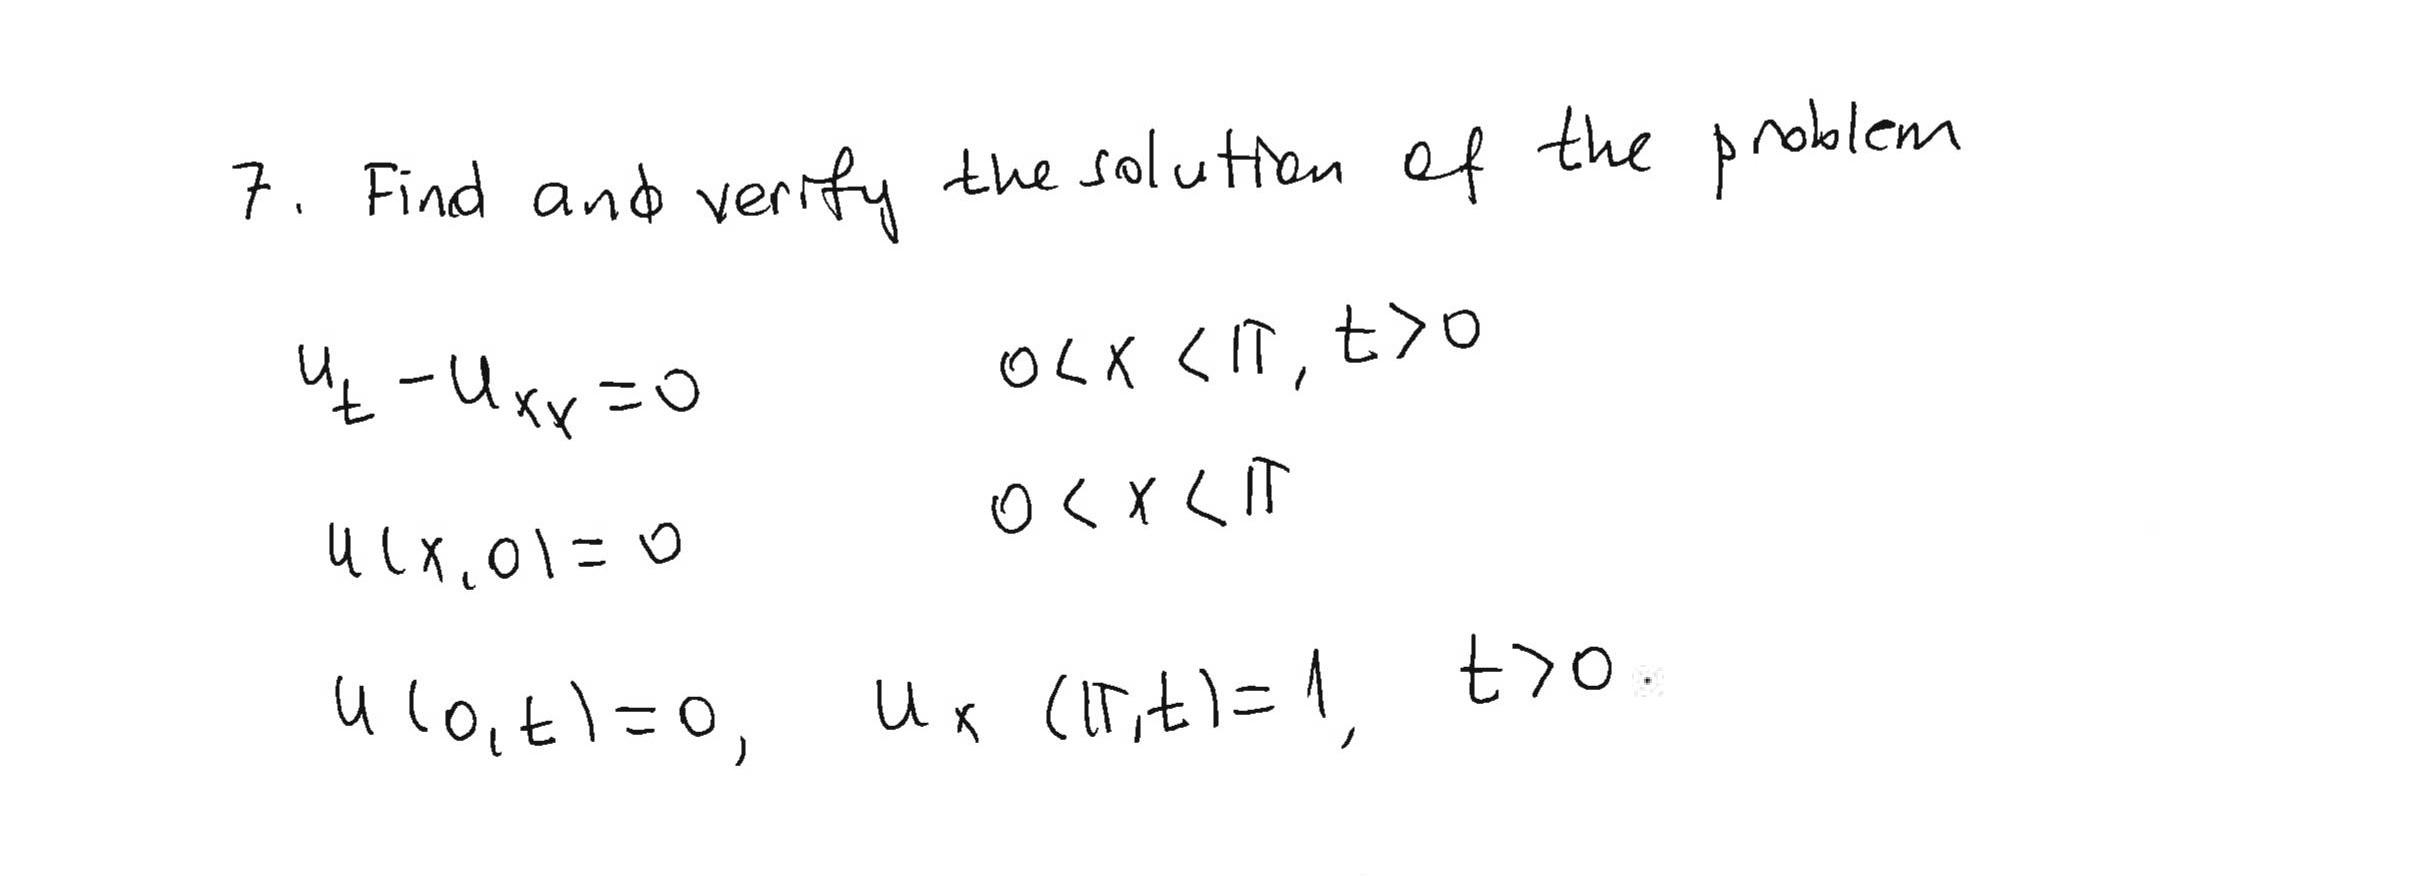 7. Find and verify the solution of the problem
u_t - u_xx = 0    0 < x < π, t > 0
u(x, 0) = 0    0 < x < π
u(0, t) = 0,    u_x (π, t) = 1,    t > 0.